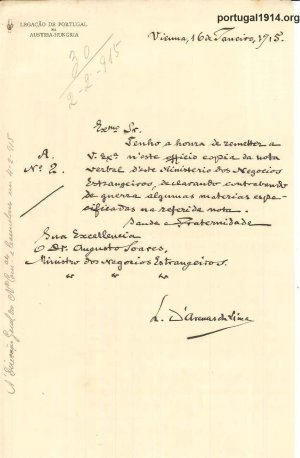 portugal1914.org
LEGAÇÃO DE PORTUGAL
NA
AUSTRIA-HUNGRIA
Vienna, 16 de Janeiro, 1915.
30
2-2-915
Exmo Sr.
A.
Nº 2.
Tenho a honra de remetter a
V. Exª n'este officio copia da nota
verbal d'este Ministerio dos Negocios
Estrangeiros, declarando contrabando
de guerra algumas materias espe-
cificadas na referida nota.
Saude e Fraternidade
Sua Excellencia
O Dr. Augusto Soares,
Ministro dos Negocios Estrangeiros.
L. d'Arenas de Lima
A Direcção Geral dos